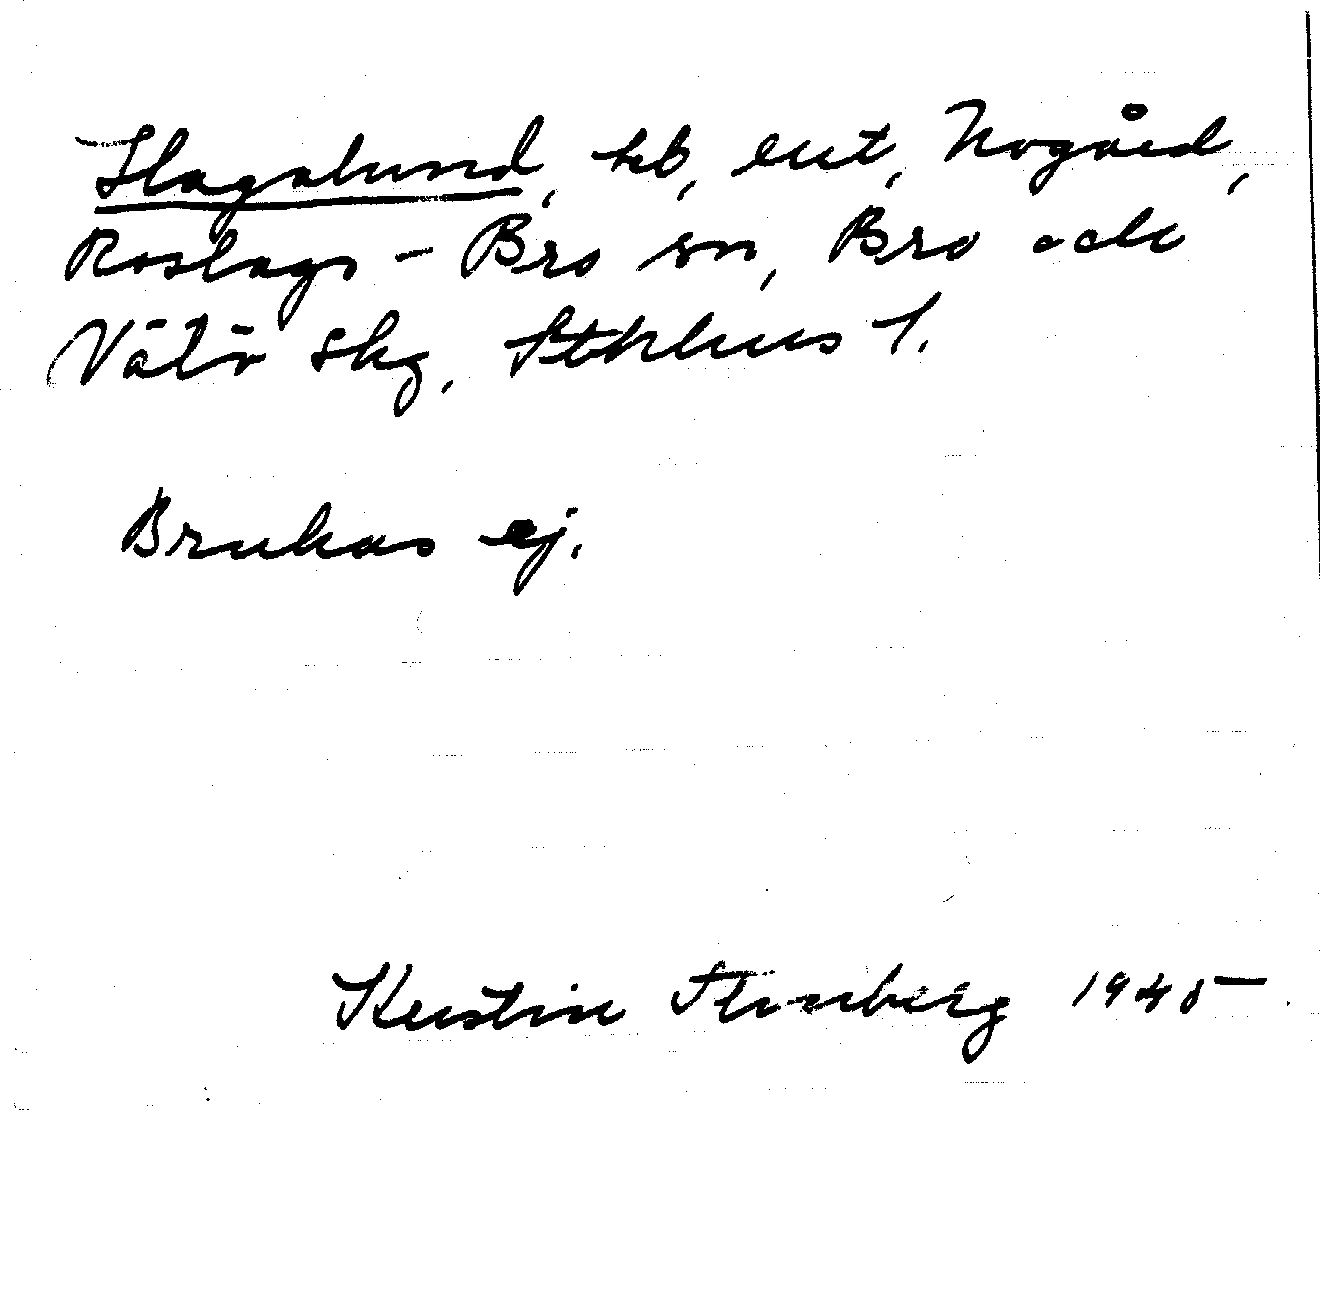 Hagalund, hb, ent, Nogård,
Roslags-Bro sn, Bro och
Vätö skg, Sthlms l.
Brukas ej.
Kerstin Stenberg 1945